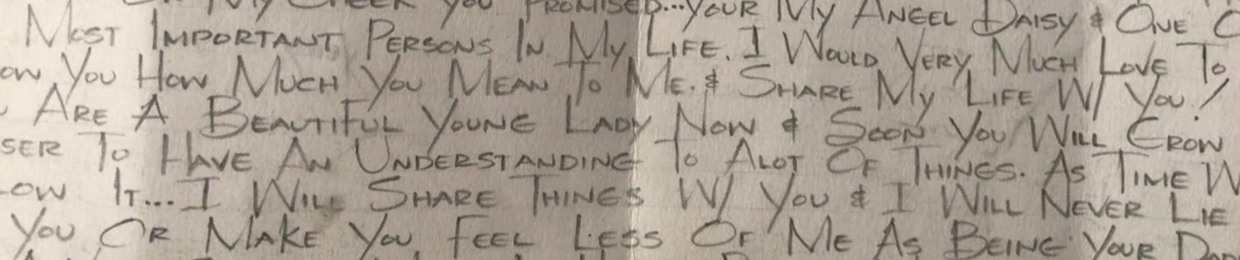 My Cheek You Promised...Your My Angel Daisy & One
Most Important Persons In My Life. I Would Very Much Love To
ow You How Much You Mean To Me. & Share My Life W/ You!
Are A Beautiful Young Lady Now & Soon You Will Grow
ser To Have An Understanding To Alot Of Things. As Time W
ow It...I Will Share Things W/ You & I Will Never Lie
You Or Make You Feel Less Of Me As Being Your Dad